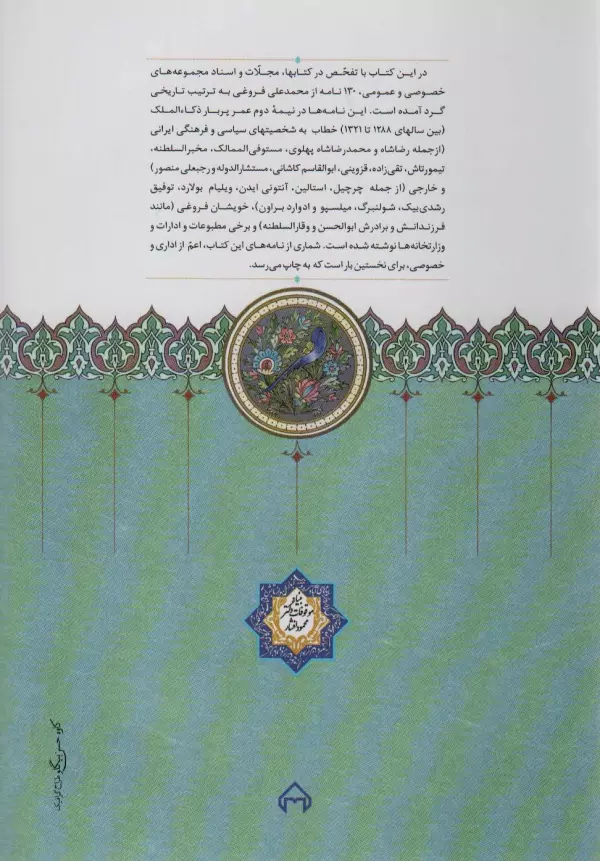 در این کتاب با تفحّص در کتابها، مجلّات و اسناد مجموعه‌های
خصوصی و عمومی، ۱۳۰ نامه از محمدعلی فروغی به ترتیب تاریخی
گرد آمده است. این نامه‌ها در نیمهٔ دوم عمر پربار ذکاءالملک
(بین سالهای ۱۲۸۸ تا ۱۳۲۱) خطاب به شخصیتهای سیاسی و فرهنگی ایرانی
(ازجمله رضاشاه و محمدرضاشاه پهلوی، مستوفی‌الممالک، مخبرالسلطنه،
تیمورتاش، تقی‌زاده، قزوینی، ابوالقاسم کاشانی، مستشارالدوله و رجبعلی منصور)
و خارجی (از جمله چرچیل، استالین، آنتونی ایدن، ویلیام بولارد، توفیق
رشدی‌بیک، شولنبرگ، میلسپو و ادوارد براون)، خویشان فروغی (مانند
فرزندانش و برادرش ابوالحسن و وقارالسلطنه) و برخی مطبوعات و ادارات و
وزارتخانه‌ها نوشته شده است. شماری از نامه‌های این کتاب، اعمّ از اداری و
خصوصی، برای نخستین بار است که به چاپ می‌رسد.
بنیاد
موقوفات دکتر
محمود افشار